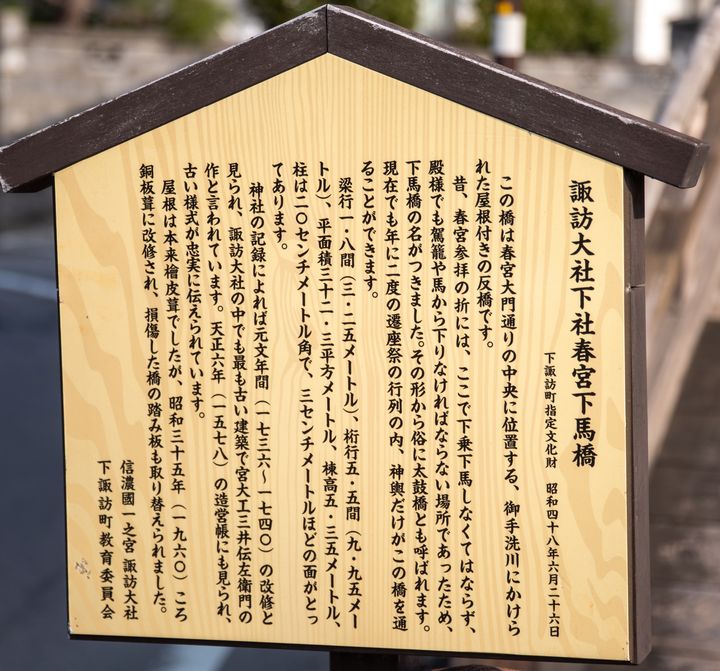 諏訪大社下社春宮下馬橋
下諏訪町指定文化財　昭和四十八年六月二十六日
この橋は春宮大門通りの中央に位置する、御手洗川にかけら
れた屋根付きの反橋です。
昔、春宮参拝の折には、ここで下乗下馬しなくてはならず、
殿様でも駕籠や馬から下りなければならない場所であったため、
下馬橋の名がつきました。その形から俗に太鼓橋とも呼ばれます。
現在でも年に二度の遷座祭の行列の内、神輿だけがこの橋を通
ることができます。
梁行一・八間（三・二五メートル）、桁行五・五間（九・九五メー
トル）、平面積三十二・三平方メートル、棟高五・三五メートル、
柱は二〇センチメートル角で、三センチメートルほどの面がとっ
てあります。
神社の記録によれば元文年間（一七三六〜一七四〇）の改修と
見られ、諏訪大社の中でも最も古い建築で宮大工三井伝左衛門の
作と言われています。天正六年（一五七八）の造営帳にも見られ、
古い様式が忠実に伝えられています。
屋根は本来檜皮葺でしたが、昭和三十五年（一九六〇）ころ
銅板葺に改修され、損傷した橋の踏み板も取り替えられました。
信濃國一之宮 諏訪大社
下諏訪町教育委員会